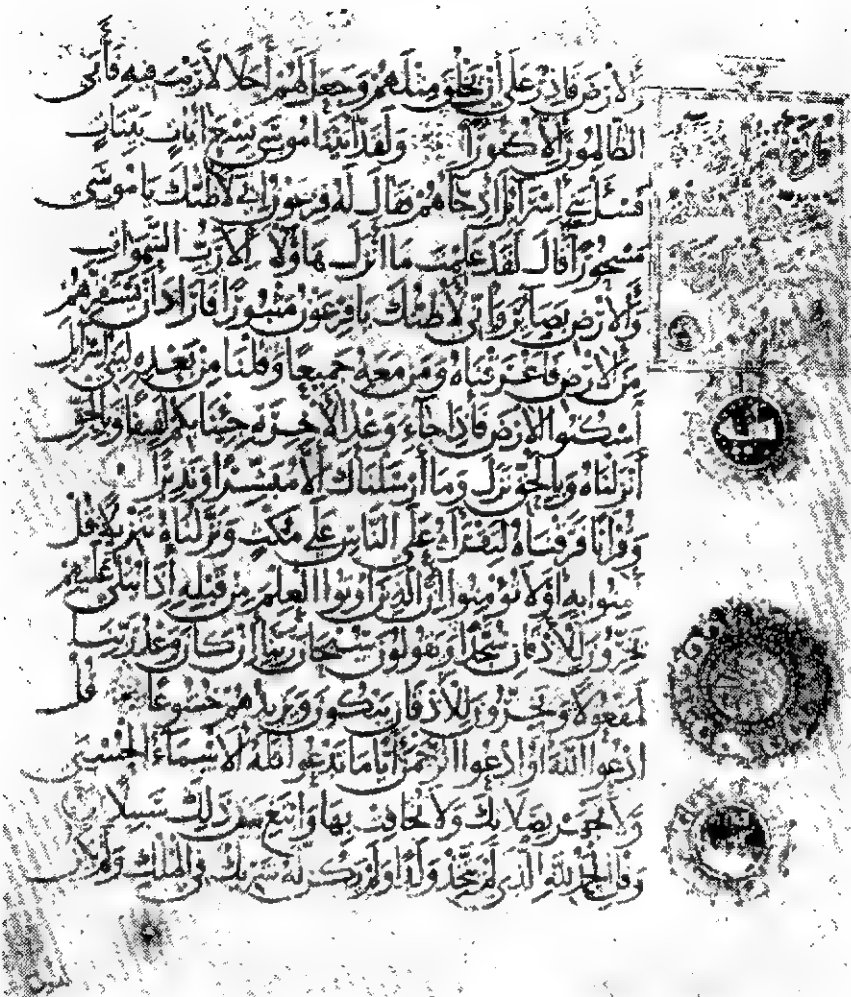 وَالأَرْضَ قَادِرٌ عَلَى أَنْ يَخْلُقَ مِثْلَهُمْ وَجَعَلَ لَهُمْ أَجَلًا لَا رَيْبَ فِيهِ فَأَبَى
الظَّالِمُونَ إِلَّا كُفُورًا وَلَقَدْ آتَيْنَا مُوسَى تِسْعَ آيَاتٍ بَيِّنَاتٍ
فَسْئَلْ بَنِي إِسْرَائِلَ إِذْ جَاءَهُمْ فَقَالَ لَهُ فِرْعَوْنُ إِنِّي لَأَظُنُّكَ يَا مُوسَى
مَسْحُورًا قَالَ لَقَدْ عَلِمْتَ مَا أَنْزَلَ هَاؤُلَاءِ إِلَّا رَبُّ السَّمَوَاتِ
وَالأَرْضِ بَصَائِرَ وَإِنِّي لَأَظُنُّكَ يَا فِرْعَوْنُ مَثْبُورًا فَأَرَادَ أَنْ يَسْتَفِزَّهُمْ
مِنَ الأَرْضِ فَأَغْرَقْنَاهُ وَمَنْ مَعَهُ جَمِيعًا وَقُلْنَا مِنْ بَعْدِهِ لِبَنِي إِسْرَائِلَ
اسْكُنُوا الأَرْضَ فَإِذَا جَاءَ وَعْدُ الآخِرَةِ جِئْنَا بِكُمْ لَفِيفًا وَبِالْحَقِّ
أَنْزَلْنَاهُ وَبِالْحَقِّ نَزَلَ وَمَا أَرْسَلْنَاكَ إِلَّا مُبَشِّرًا وَنَذِيرًا
وَقُرْآنًا فَرَقْنَاهُ لِتَقْرَأَهُ عَلَى النَّاسِ عَلَى مُكْثٍ وَنَزَّلْنَاهُ تَنْزِيلًا قُلْ
آمِنُوا بِهِ أَوْ لَا تُؤْمِنُوا إِنَّ الَّذِينَ أُوتُوا الْعِلْمَ مِنْ قَبْلِهِ إِذَا يُتْلَى عَلَيْهِمْ
يَخِرُّونَ لِلْأَذْقَانِ سُجَّدًا وَيَقُولُونَ سُبْحَانَ رَبِّنَا إِنْ كَانَ وَعْدُ رَبِّنَا
لَمَفْعُولًا وَيَخِرُّونَ لِلْأَذْقَانِ يَبْكُونَ وَيَزِيدُهُمْ خُشُوعًا قُلِ
ادْعُوا اللَّهَ أَوِ ادْعُوا الرَّحْمَنَ أَيًّا مَا تَدْعُوا فَلَهُ الأَسْمَاءُ الْحُسْنَى
وَلَا تَجْهَرْ بِصَلَاتِكَ وَلَا تُخَافِتْ بِهَا وَابْتَغِ بَيْنَ ذَلِكَ سَبِيلًا
وَقُلِ الْحَمْدُ لِلَّهِ الَّذِي لَمْ يَتَّخِذْ وَلَدًا وَلَمْ يَكُنْ لَهُ شَرِيكٌ فِي الْمُلْكِ وَلَمْ يَكُنْ